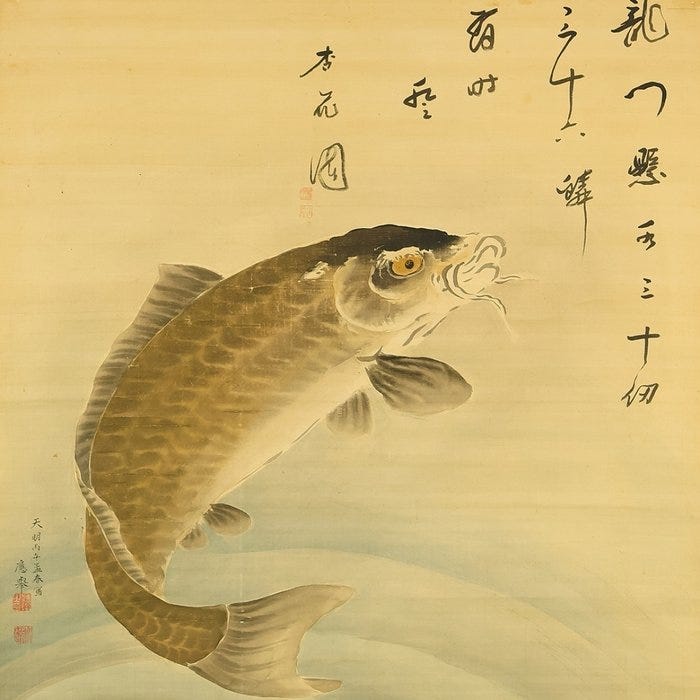 龍門懸水三十仞
三十六鱗
有時登
杏花園
天明丙午孟春寫
應舉